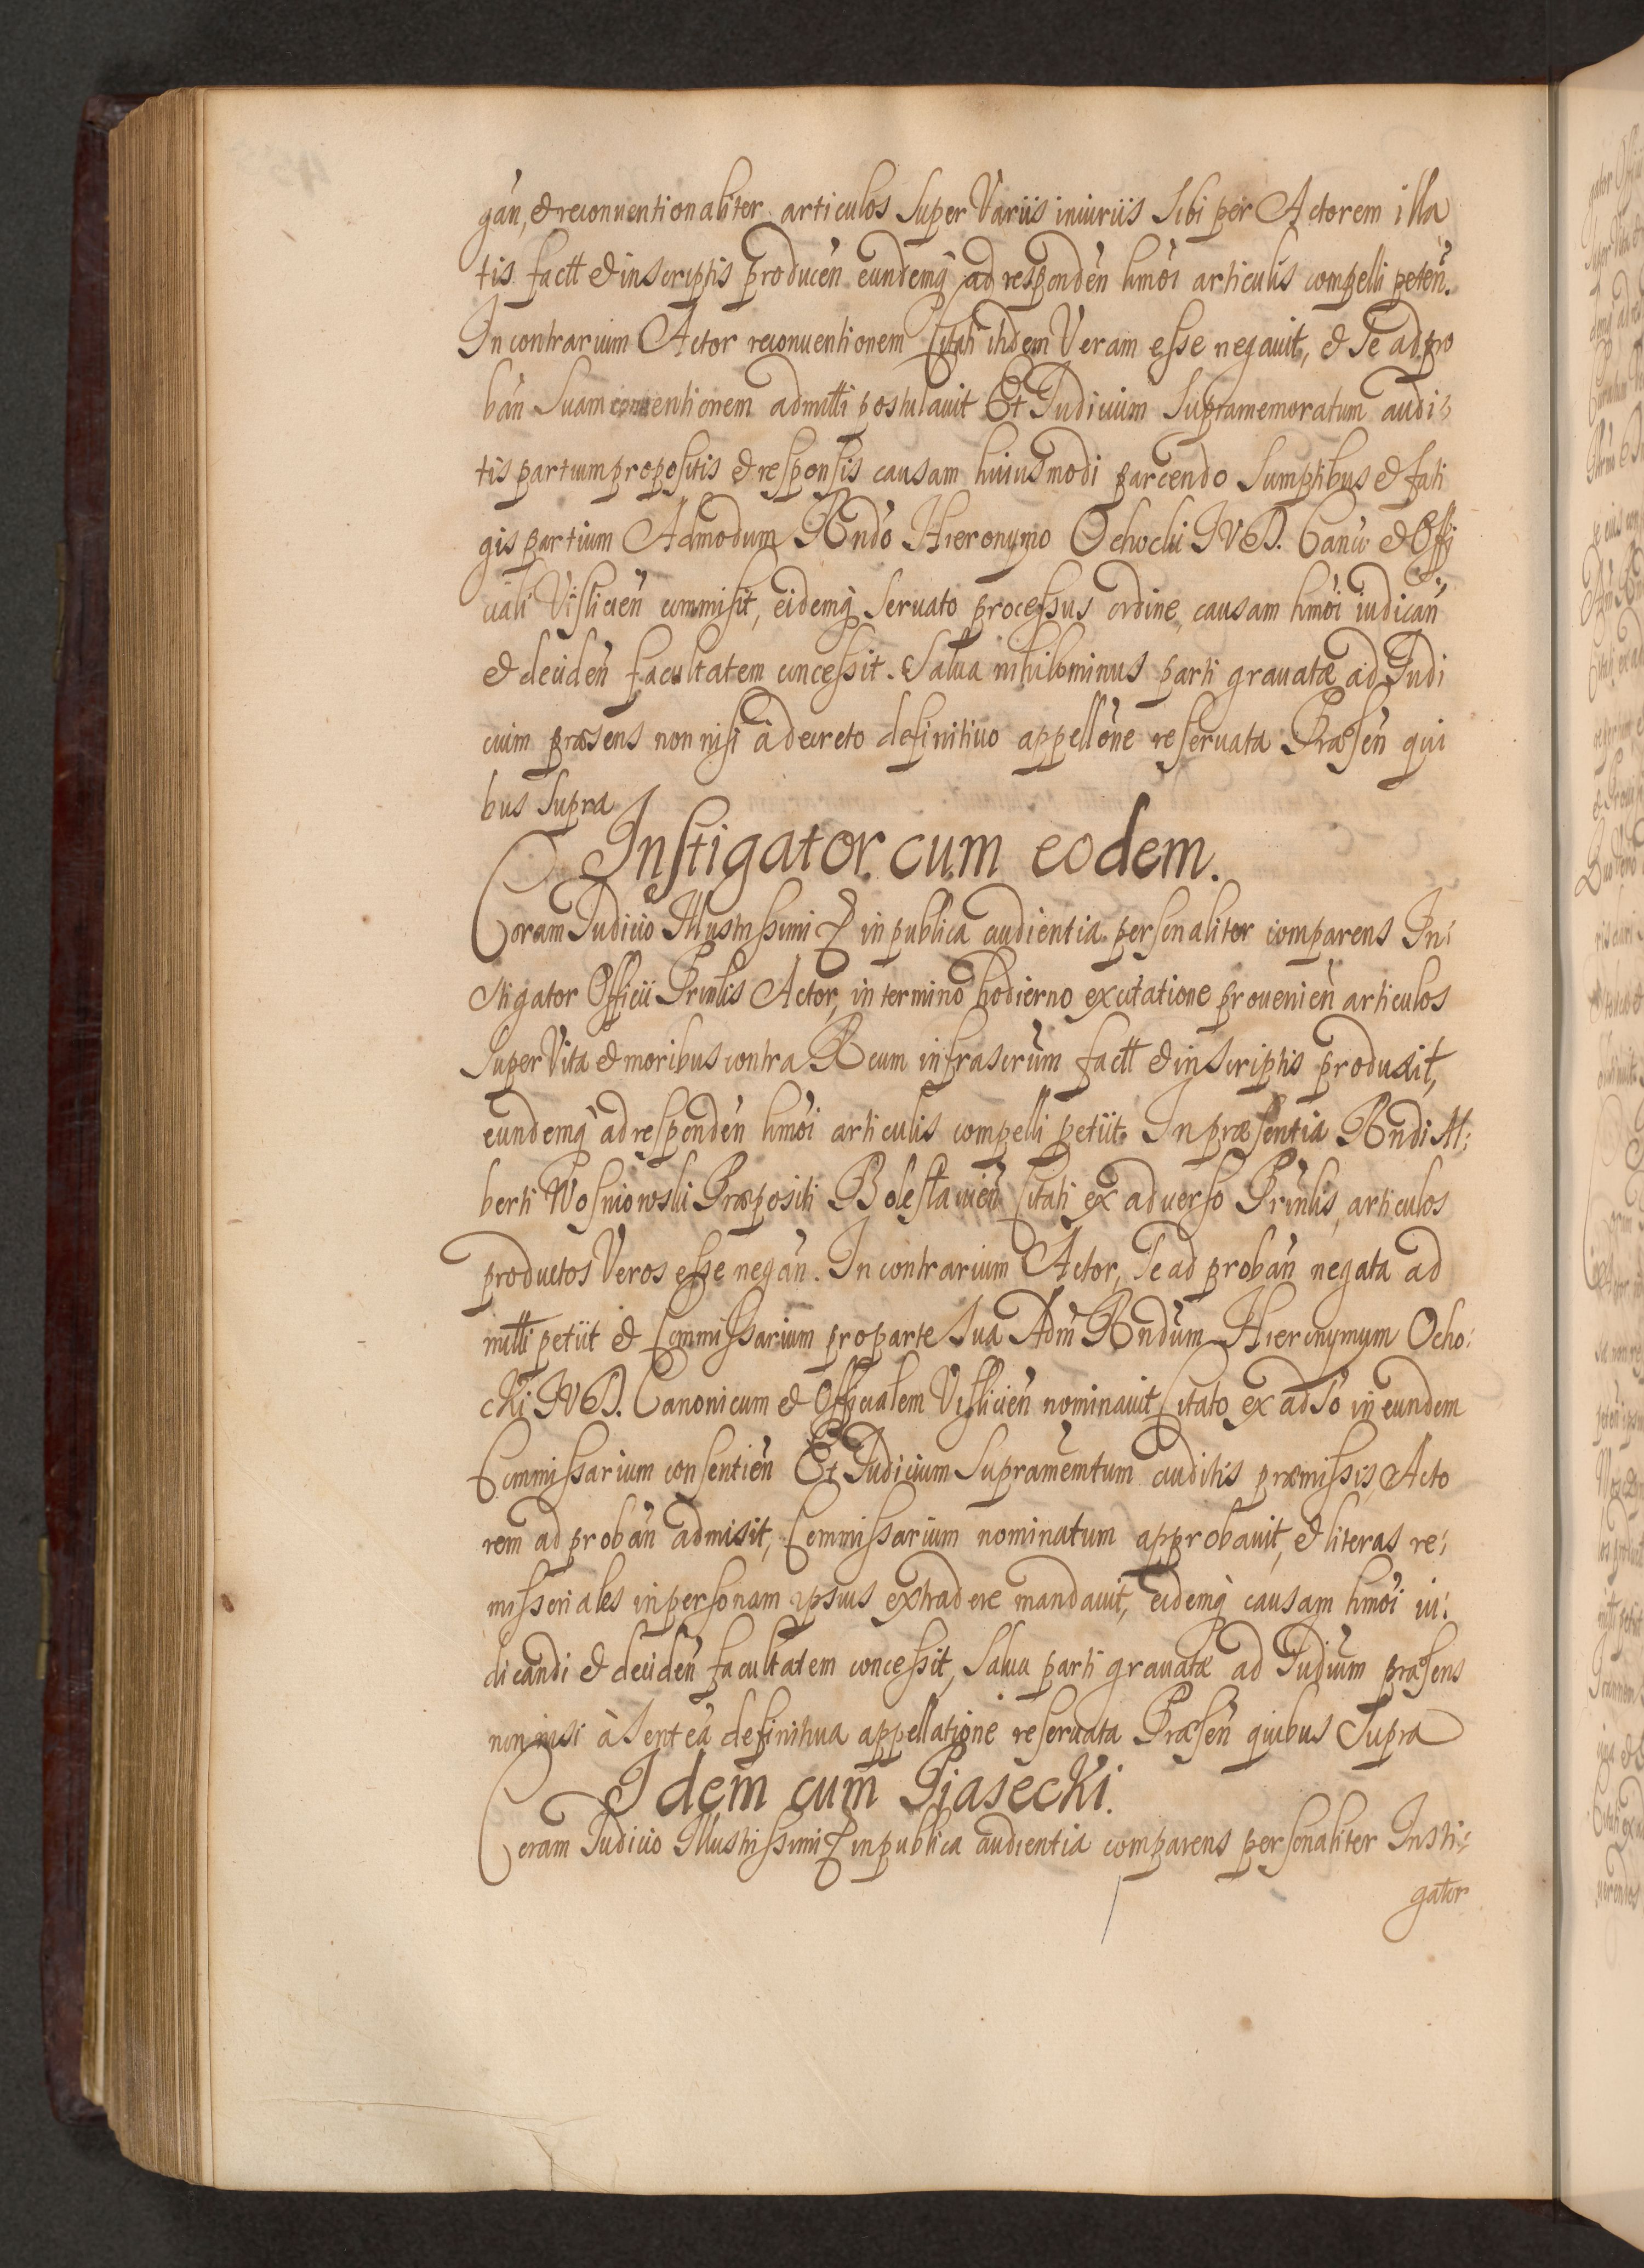 gan, & reconuentionaliter articulos super Variis iniuriis sibi per Actorem illa
tis factt & in scriptis producen̄ eundemq̀ ad responden̄ hmōi articulis compelli peten̄.
In contrarium Actor reconuentionem Citati itidem Veram esse negauit, & se ad pro
ban̄ suam conuentionem admitti postulauit Et Iudicium supramemoratum audi:
tis partium propositis & responsis causam huiusmodi parcendo sumptibus & fati
gis partium Admodum Rndo Hieronymo Ochocki IVD. Canco & Offi
ciali Vislicien̄ commisit, eidemq̀ seruato processus ordine, causam hmōi iudican̄
& deciden̄ facultatem concessit. Salua nihilominus parti grauatæ ad Iudi
cium præsens non nisi à decreto definitiuo appellōne reseruata Præsen̄ qui
bus supra
Instigator cum eodem.
Coram Iudicio Illustrissimi & in publica audientia personaliter comparens In:
stigator Officii Prinlis Actor, in termino hodierno ex citatione prouenien̄ articulos
super Vita & moribus contra Reum infrascrum factt & in scriptis produxit,
eundemq̀ ad responden̄ hmōi articulis compelli petiit. In præsentia Rndi Al:
berti Wosniowski Præpositi Boleslauien̄ Citati ex aduerso Prinlis, articulos
productos Veros esse negan̄. In contrarium Actor, se ad proban̄ negata ad
mitti petiit & Commissarium pro parte sua Adm̄ Rndum Hieronymum Ocho:
cki IVD. Canonicum & Officialem Vislicien̄ nominauit Citato ex adso in eundem
Commissarium consentien̄ Et Iudicium supramemtum auditis præmissis, Acto
rem ad proban̄ admisit, Commissarium nominatum approbauit, & literas re:
missoriales in personam ipsius extradere mandauit, eidemq̀ causam hmōi iu:
dicandi & deciden̄ facultatem concessit, salua parti grauatæ ad Iudium præsens
non nisi à sent̄ea definitiua appellatione reseruata Præsen̄ quibus supra
Idem cum Piasecki.
Coram Iudicio Illustrissimi & in publica audientia comparens personaliter Insti:
gator